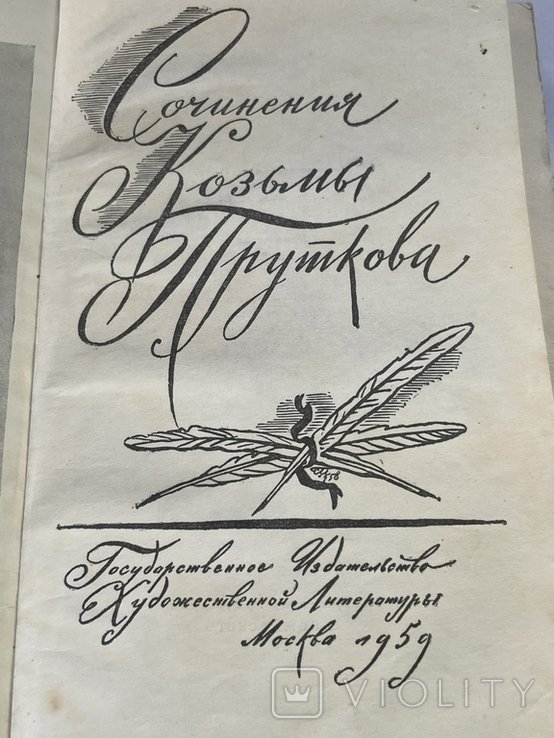 Сочинения
Козьмы
Пруткова
1958
Государственное Издательство
Художественной Литературы
Москва 1959
VIOLITY